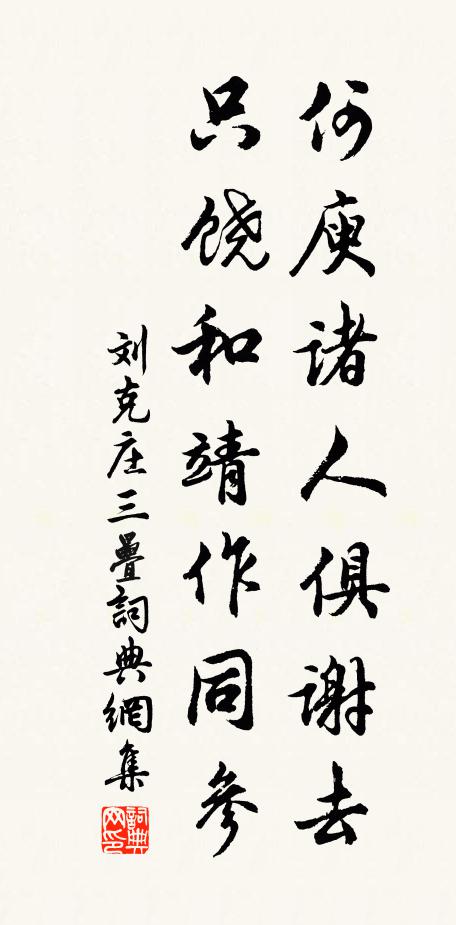 何庾诸人俱谢去
只饶和靖作同参
刘克庄三疊詞典網集
詞典网印